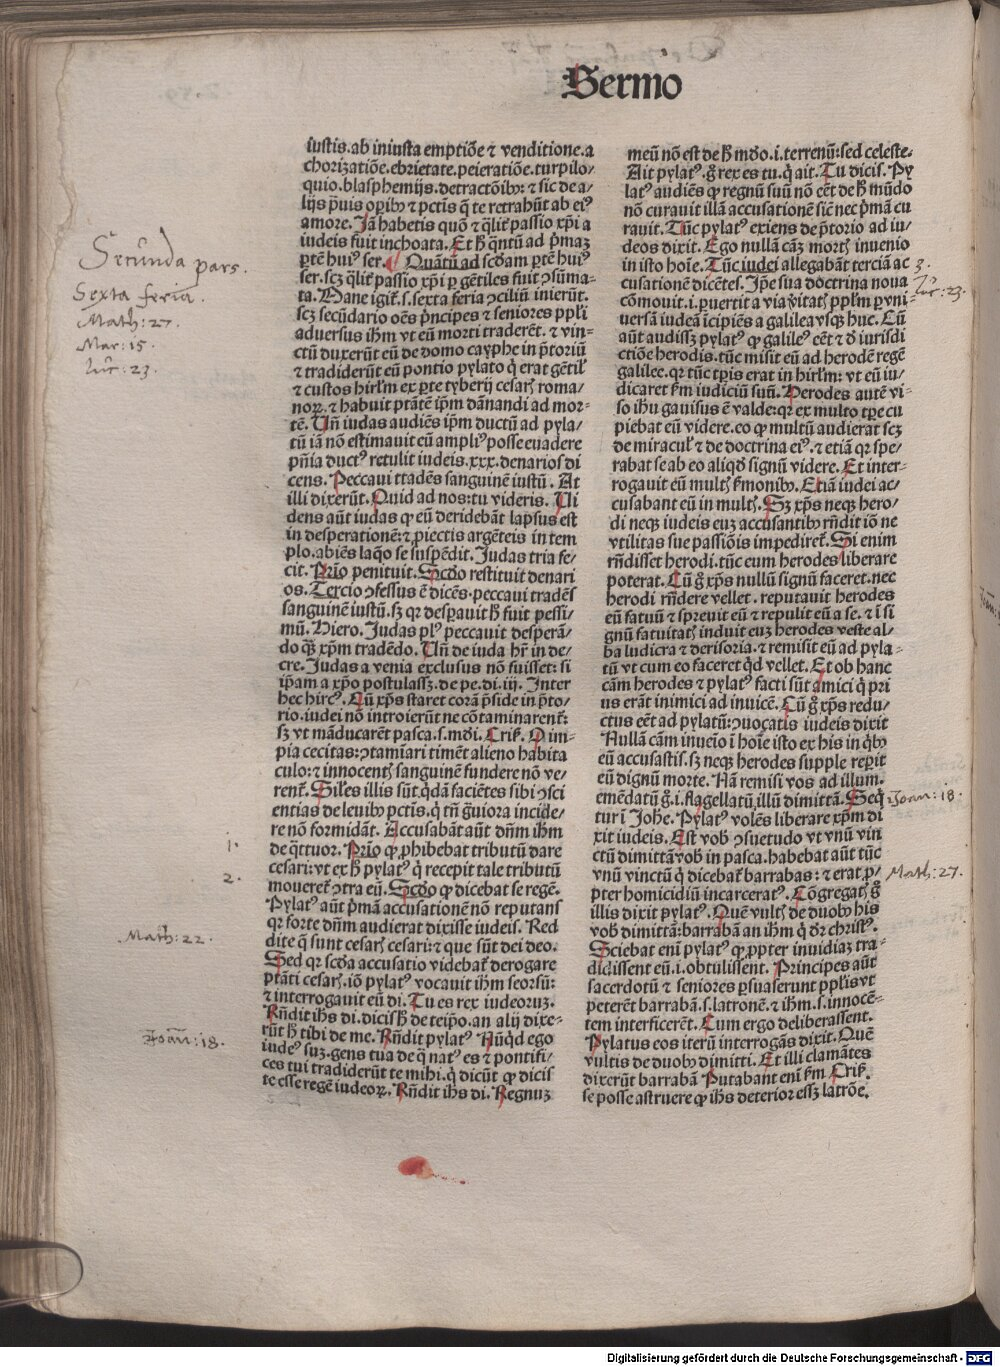 Sermo
iustis. ab iniusta emptiōe ⁊ venditione. a
chorizatiōe. ebrietate. peieratiōe. turpilo/
quio. blasphemijs. detractōib9: ⁊ sic de a/
lijs p̄uis opib9 ⁊ pctis q̄ te retrahūt ab ei9
amore. Jā habetis quō ⁊ q̄lit̛ passio xp̄i a
iudeis fuit inchoata. Et h̄ q̄ntū ad p̄maz
ꝑtē hui9 ser. Quātū ad scdam ꝑtē hui9
ser. scz q̄lit̛ passio xp̄i ꝑ gētiles fuit ꝯsūma-
ta. Mane igit̛. s. sexta feria ꝯciliū inierūt.
scz secūdario oēs p̄ncipes ⁊ seniores ppl̄i
aduersus ih̄m vt eū morti traderēt. ⁊ vin-
ctū duxerūt eū de domo cayphe in p̄toriū
⁊ tradiderūt eū pontio pylato q̄ erat gētil̛
⁊ custos hirl̄m ex ꝑte tyberij cesar̛ roma/
noꝝ. ⁊ habuit ptātē ip̄m dānandi ad mor-
tē. Vn̄ iudas audiēs ip̄m ductū ad pyla/
tū iā nō estimauit eū ampli9 posse euadere
pn̄ia duct9 retulit iudeis. xxx. denarios di
cens. Peccaui tradēs sanguinē iustū. At
illi dixerūt. Quid ad nos: tu videris. Vi
dens aūt iudas ꝙ eū deridebāt lapsus est
in desperationē: ⁊ ꝓiectis argēteis in tem
plo. abiēs laq̄o se suspēdit. Judas tria fe/
cit. Prīo penituit. Scdo restituit denari
os. Tercio ꝯfessus ē dicēs. peccaui tradēs
sanguinē iustū. sꝫ qꝛ desꝑauit h̄ fuit pessi/
mū. Hiero. Judas pl9 peccauit desperā/
do q̄ꝫ xp̄m tradēdo. Vn̄ de iuda hr̄ in de/
cre. Judas a venia exclusus nō fuisset: si
ip̄am a xp̄o postulassꝫ. de pe. di. iij. Inter
hec hirc9. Cū xp̄s staret corā p̄side in p̄to/
rio. iudei nō introierūt ne cōtaminarent̛:
sꝫ vt māducarēt pasca. s. mūdi. Criſ̛. O im-
pia cecitas: ꝯtamīari timēt alieno habita
culo: ⁊ innocent̛ sanguinē fundere nō ve/
rent̛. Siles illis sūt q̄dā faciētes sibi ꝯsci
entias de leuib9 pctis. q̄ tn̄ ḡuiora incide/
re nō formidāt. Accusabāt aūt dn̄m ih̄m
de q̄ttuor. Prīo ꝙ ꝓhibebat tributū dare
cesari: vt ex h̄ pylat9 q̄ recepit tale tributū
moueret̛ ꝯtra eū. Scdo ꝙ dicebat se regē.
Pylat9 aūt p̄mā accusationē nō reputans
qꝛ forte dn̄m audierat dixisse iudeis. Red
dite q̄ sunt cesar̛ cesari: ⁊ que sūt dei deo.
Sed qꝛ scda accusatio videbat̛ derogare
ptāti cesar̛. iō pylat9 vocauit ih̄m seorsū:
⁊ interrogauit eū di. Tu es rex iudeoruꝫ.
Rn̄dit ih̄s di. dicis h̄ de teip̄o. an alij dixe-
rūt h̄ tibi de me. Rn̄dit pylat9 Nūqd ego
iude9 suꝫ. gens tua de q̄ nat9 es ⁊ pontifi/
ces tui tradiderūt te mihi. q̄ dicūt ꝙ dicis
te esse regē iudeoꝝ. Rn̄dit ih̄s di. Regnuꝫ
meū nō est de h̄ mūdo. i. terrenū: sed celeste.
Ait pylat9. ḡ rex es tu. q̄ ait. Tu dicis. Py
lat9 audiēs ꝙ regnū suū nō eēt de h̄ mūdo
nō curauit illā accusationē sic̄ nec p̄mā cu
rauit. Tūc pylat9 exiens de p̄torio ad iu/
deos dixit. Ego nullā cāꝫ mort̛ inuenio
in isto hoīe. Tūc iudei allegabāt terciā ac
cusationē dicētes. Jp̄e sua doctrina noua
cōmouit. i. ꝑuertit a via v̄itat̛ ppl̄m ꝑ vni/
uersā iudeā īcipiēs a galilea vsqꝫ huc. Cū
aūt audissꝫ pylat9 ꝙ galile9 eēt ⁊ d̄ iurisdi
ctiōe herodis. tūc misit eū ad herodē regē
galilee. qꝛ tūc tꝑis erat in hirl̄m: vt eū iu/
dicaret ẜm iudiciū suū. Herodes autē vi/
so ih̄u gauisus ē valde: qꝛ ex multo tꝑe cu
piebat eū videre. eo ꝙ multū audierat scꝫ
de miracul̛ ⁊ de doctrina ei9. ⁊ etiā qꝛ spe/
rabat se ab eo aliqd̄ signū videre. Et inter-
rogauit eū mult̛ ẜmonib9. Etiā iudei ac/
cusabant eū in mult̛. Sꝫ xp̄s neqꝫ hero/
di neqꝫ iudeis euꝫ accusantib9 rn̄dit iō ne
vtilitas sue passiōis impediret̛. Si enim
rn̄disset herodi. tūc eum herodes liberare
poterat. Cū ḡ xp̄s nullū signū faceret. nec
herodi rn̄dere vellet. reputauit herodes
eū fatuū ⁊ spreuit eū ⁊ repulit eū a se. ⁊ ī si
gnū fatuitat̛ induit euꝫ herodes veste al/
ba ludicra ⁊ derisoria. ⁊ remisit eū ad pyla-
tū vt cum eo faceret qd̄ vellet. Et ob hanc
cām herodes ⁊ pylat9 facti sūt amici q̄ pri
us erāt inimici ad inuicē. Cū ḡ xp̄s redu/
ctus eēt ad pylatū: ꝯuocatis iudeis dixit
Nullā cām inueīo ī hoīe isto ex his in q̄b9
eū accusastis. sꝫ neqꝫ herodes supple reꝑit
eū dignū morte. Nā remisi vos ad illum.
emēdatū ḡ. i. flagellatū, illū dimittā. Seq̄
tur ī Joh̄e. Pylat9 volēs liberare xp̄m di
xit iudeis. Est vob̛ ꝯsuetudo vt vnū vin
ctū dimittā vob̛ in pasca. habebat aūt tūc
vnū vinctū q̄ dicebat̛ barrabas: ⁊ erat ꝓ/
pter homicidiū incarcerat9. Cōgregat̛ ḡ
illis dixit pylat9. Quē vult̛ de duob9 his
vob̛ dimittā: barrabā an ih̄m q̄ dr̄ christ9.
Sciebat enī pylat9 ꝙ ꝓpter inuidiaꝫ tra-
didissent eū. i. obtulissent. Principes aūt
sacerdotū ⁊ seniores ꝑsuaserunt ppl̄is vt
peterēt barrabā. s. latronē. ⁊ ih̄m. s. innocē-
tem interficerēt. Cum ergo deliberassent.
Pylatus eos iterū interrogās dixit. Quē
vultis de duob9 dimitti. Et illi clamātes
dixerūt barrabā Putabant enī ẜm Criſ̛.
se posse astruere ꝙ ih̄s deterior essꝫ latrōe.
Secunda pars.
Sexta feria.
Math: 27.
Mar: 15.
Luc: 23.
1.
2.
Math: 22.
Joan: 18.
3.
Luc: 23.
Joan: 18.
Math: 27.
Digitalisierung gefördert durch die Deutsche Forschungsgemeinschaft - DFG